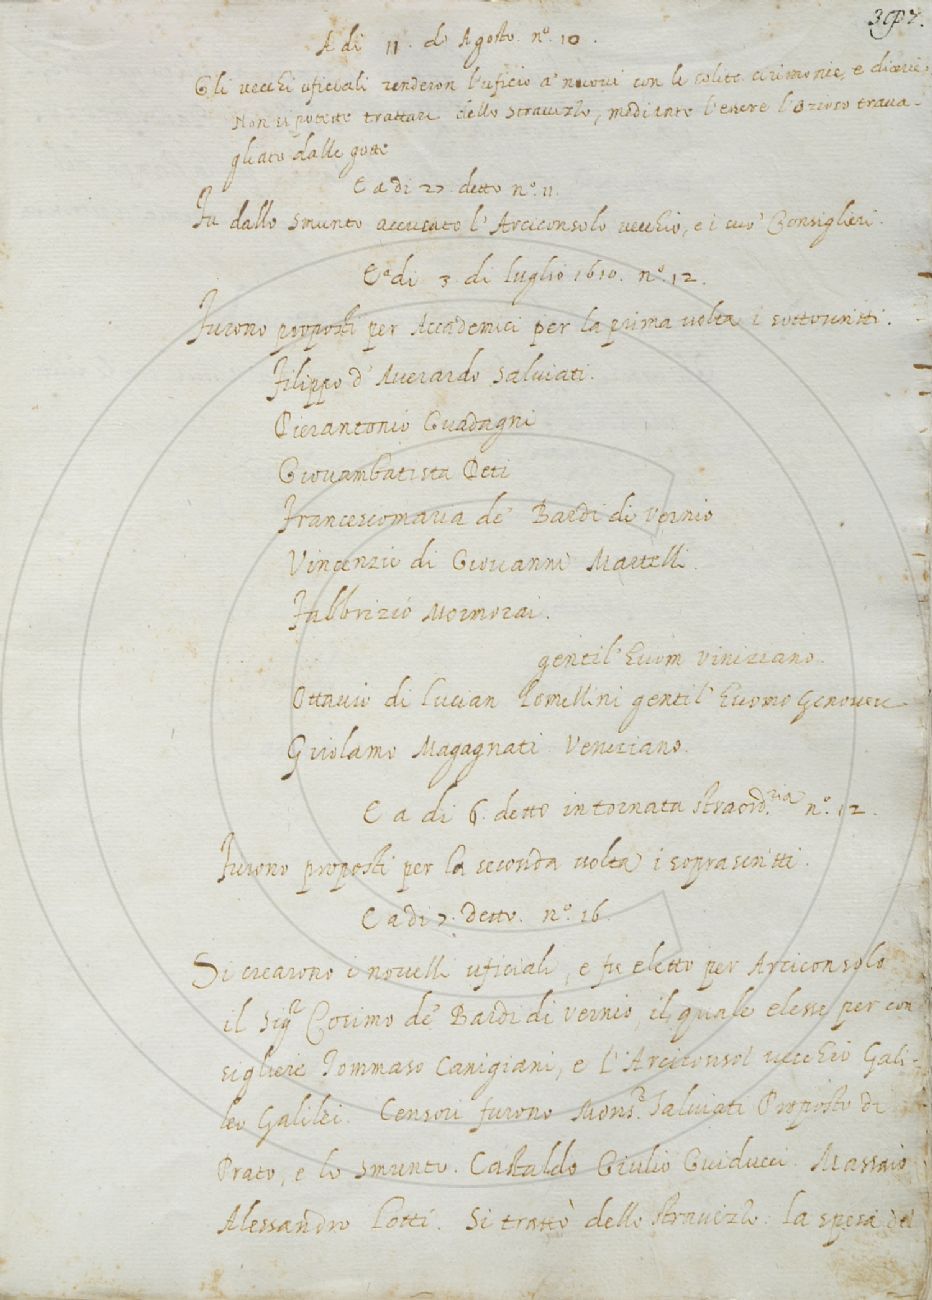 397.
A di 11. di Agosto. n.º 10.
Gli vecchi uficiali renderon l'uficio a' nuovi con le solite cirimonie, e dicerie.
Non si potette trattare dello Stravizzo, mediante l'essere l'Ozioso trava-
gliato dalle gotte
E a di 27. detto n.º 11.
Fu dallo Smunto accusato l'Arciconsolo vecchio, e i suo' Consiglieri.
E a di 3 di luglio 1610. n.º 12.
Furono proposti per Accademici per la prima volta i sottoscritti.
Filippo d'Averardo Salviati.
Pierantonio Guadagni
Giovambatista Deti
Francescomaria de' Bardi di Vernio
Vincenzio di Giovanni Martelli.
Fabbrizio Mormorai.
gentil'huom Viniziano.
Ottavio di Lucian Lomellini gentil'huomo Genovese
Girolamo Magagnati Veneziano.
E a di 6. detto in tornata straord.ria n.º 12.
Furono proposti per la seconda volta i soprascritti.
E a di 7. detto. n.º 16.
Si crearono i novelli uficiali, e fu eletto per Arciconsolo
il Sig.r Cosimo de' Bardi di Vernio, il quale elesse per con
sigliere Tommaso Canigiani, e l'Arciconsol vecchio Gali-
leo Galilei. Censori furono Mons.r Salviati Proposto di
Prato, e lo Smunto. Castaldo Giulio Guiducci. Massaio
Alessandro Potti. Si trattò dello stravizzo. la spesa del